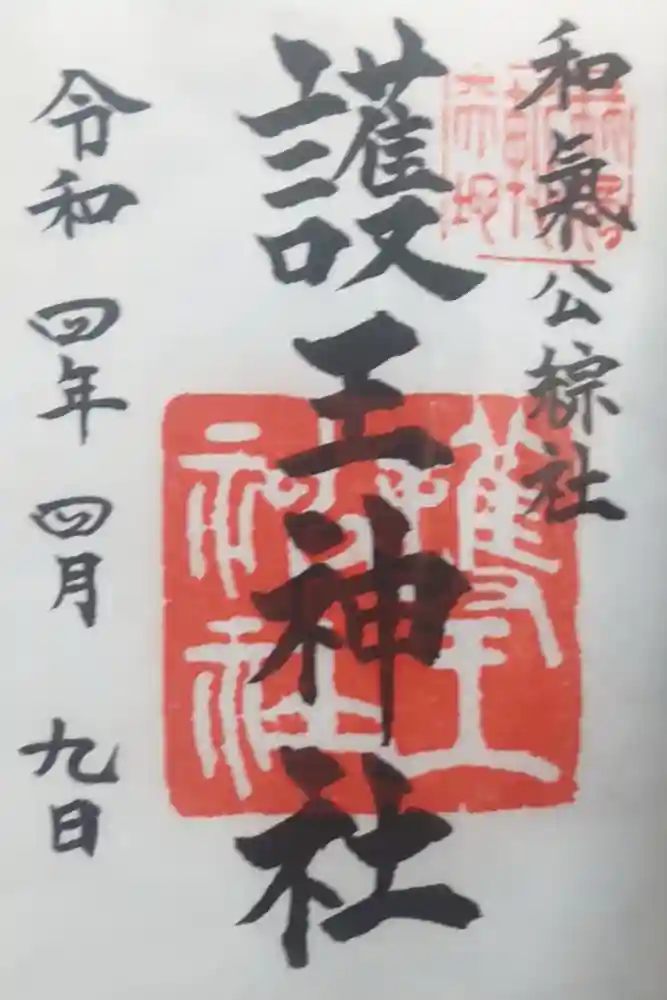 和氣公綜社
護王神社
護王神社
令和四年四月九日